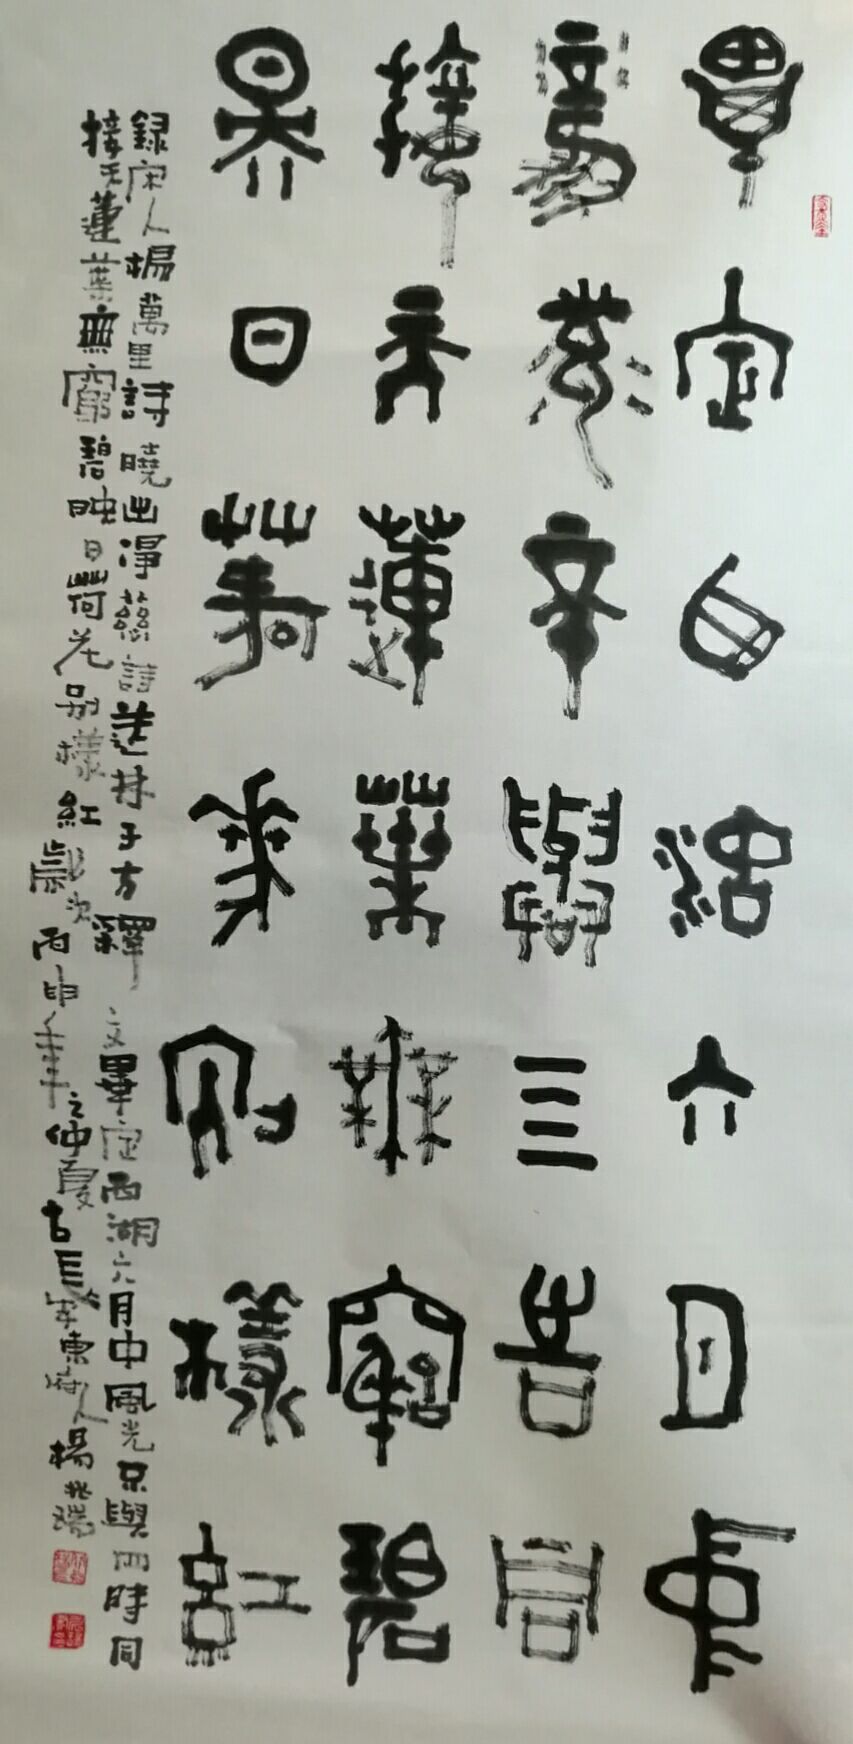 畢定西湖六月中
風光不與四時同
接天蓮葉無窮碧
映日荷花別樣紅
錄宋人楊萬里詩曉出淨慈詩送林子方釋文畢定西湖六月中風光不與四時同
接天蓮葉無窮碧映日荷花別樣紅歲次丙申年之仲夏古長安東府人楊兆瑞